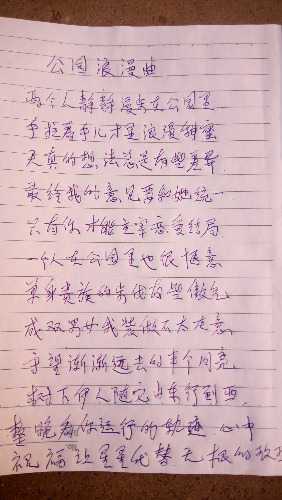 公园浪漫曲
两个人静静漫步在公园里
手拉着手儿才是浪漫甜蜜
天真的想法总是有些羞昂
最终我的意见要和她统一
只有你才能主宰恋爱结局
一个人在公园里也很惬意
单身贵族的步伐有些傲气
成双男女我装做不太在意
守望渐渐远去的半个月亮
树下伊人随它东行到西
整晚看你运行的轨迹 心中
祝福 星星代替无限的